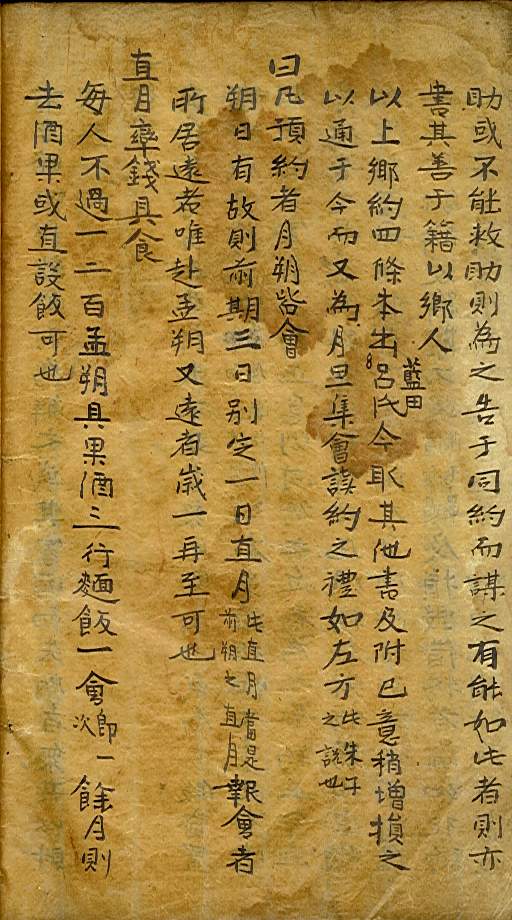 助或不能救助則為之告于同約而謀之有能如此者則亦
書其善于籍以鄉人
以上鄉約四條本出藍田呂氏今取其他書及附已意稍增損之
以通于今而又為月旦集會讀約之禮如左方此朱子之說也
曰凡預約者月朔皆會
朔日有故則前期三日別定一日直月此直月當是前朔之直月報會者
所居遠者唯赴孟朔又遠者歲一再至可也
直月率錢具食
每人不過一二百孟朔具果酒三行麵飯一會次郎一餘月則
去酒果或直設飯可也